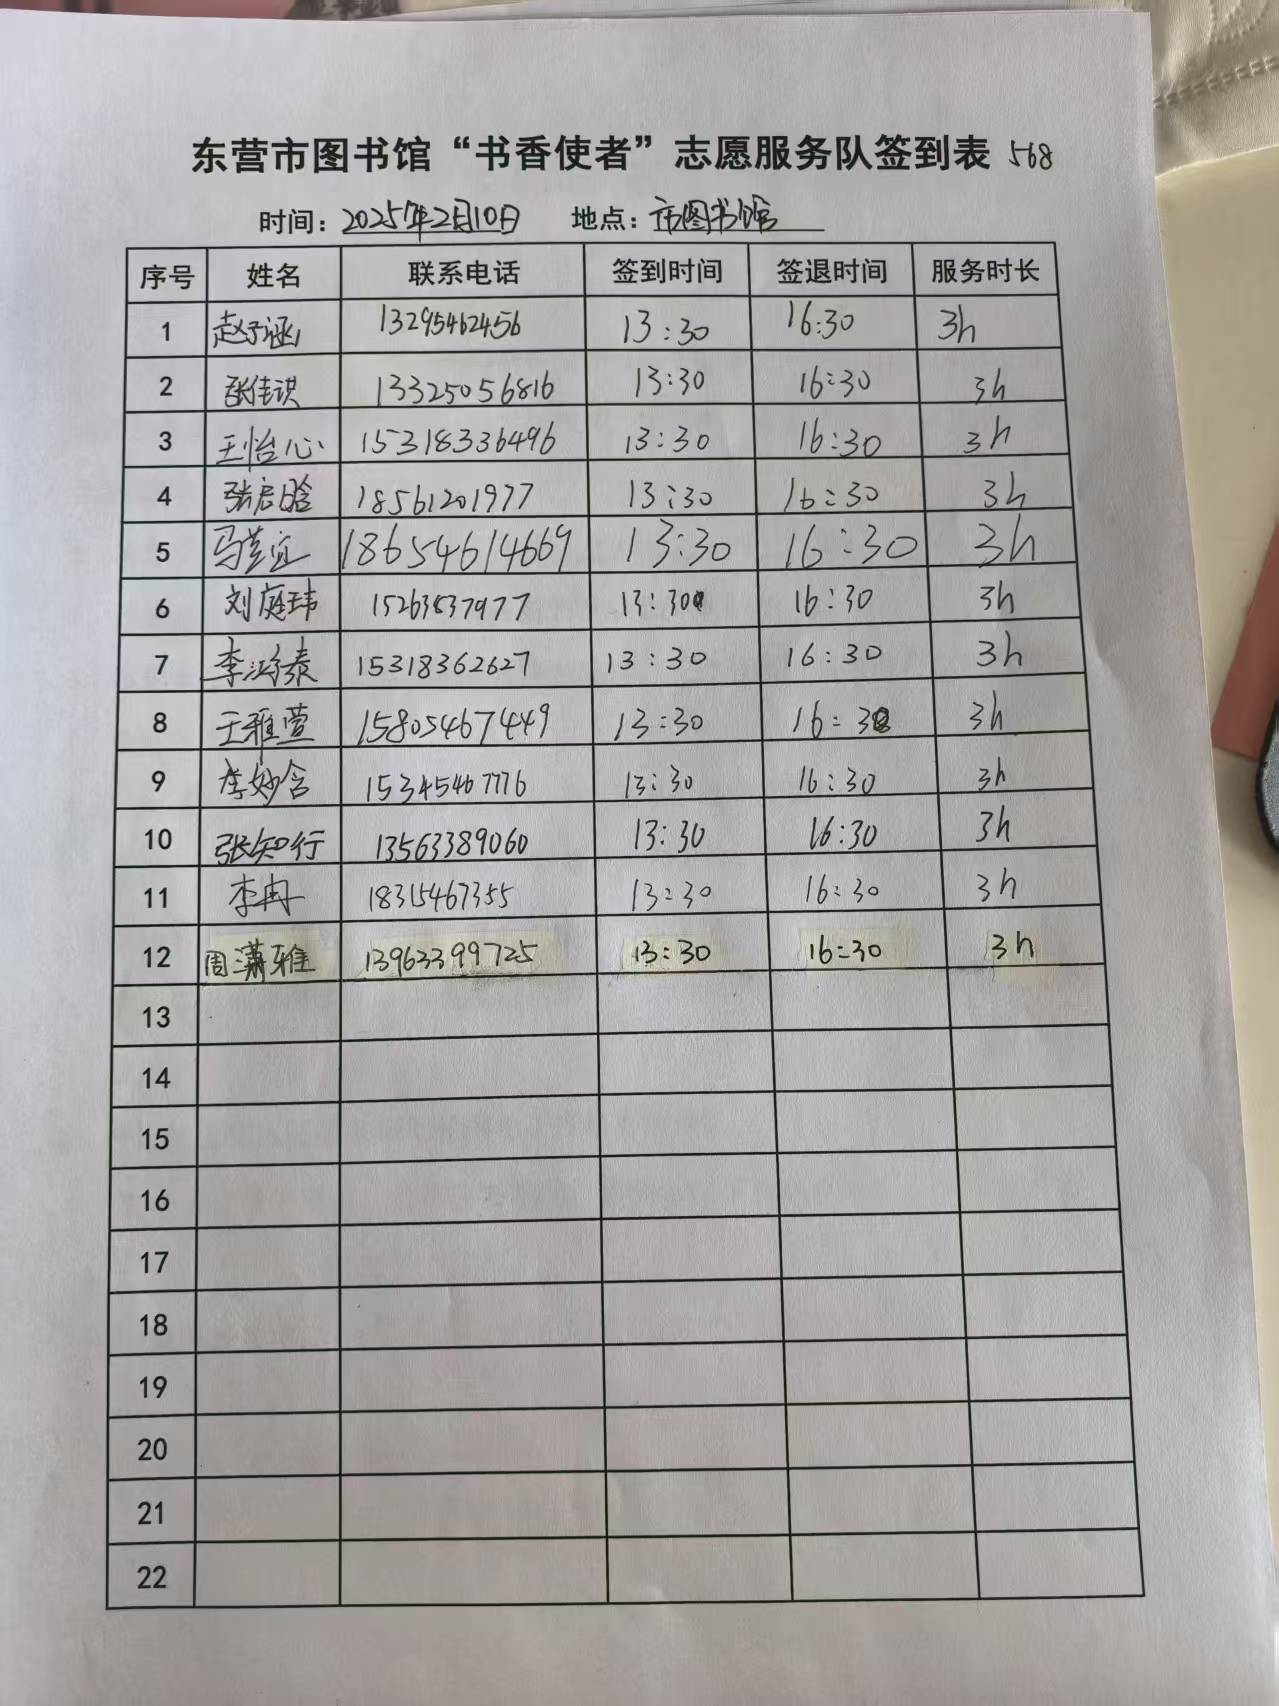 东营市图书馆“书香使者”志愿服务队签到表 568
时间：2025年2月10日 地点：市图书馆
序号 姓名 联系电话 签到时间 签退时间 服务时长
1 赵子涵 13295462456 13:30 16:30 3h
2 张佳琪 13325056816 13:30 16:30 3h
3 王怡心 15318336496 13:30 16:30 3h
4 张启晗 18561201977 13:30 16:30 3h
5 马萱宜 18654614669 13:30 16:30 3h
6 刘庭玮 15263837977 13:30 16:30 3h
7 李鸿泰 15318362627 13:30 16:30 3h
8 王雅萱 15805467449 13:30 16:30 3h
9 李妙含 15345467776 13:30 16:30 3h
10 张知行 13563389060 13:30 16:30 3h
11 李冉 18315467355 13:30 16:30 3h
12 周潇雅 13963399725 13:30 16:30 3h
13
14
15
16
17
18
19
20
21
22